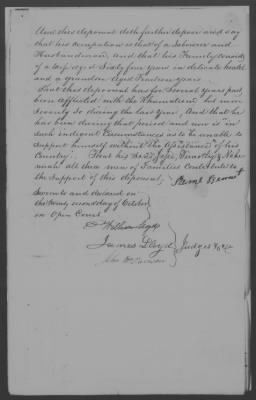 And this deponent doth further depose and say
that his occupation is that of a Laborer and
Husbandman, and that his Family consists
of a wife aged Sixty four years in delicate health
and a grandson Aged Fourteen years.
That this deponent has for Several years past
been afflicted with the Rheumatism but more
severely so during the last Year, And that he
has been during that period and now is in
such indigent Circumstances as to be unable to
Support himself without the Assistance of his
Country. That his Sons Timothy &
all three men of Families Contribute to
the support of this deponent,
Sworn to and declared on
the twenty second day of October
in Open Court
William
James Lloyd
Judges &c